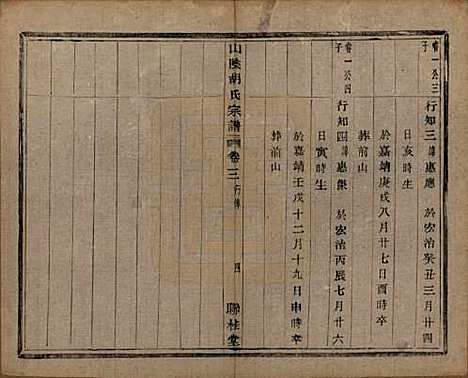 睿一公三子
行知三諱惠應 於宏治癸丑三月廿四
日亥時生
於嘉靖庚戌八月廿七日酉時卒
葬前山
睿一公四子
行知四諱惠傑 於宏治丙辰七月廿六
日寅時生
於嘉靖壬戌十二月十九日申時卒
葬前山
山陰胡氏宗譜 卷三 行傳 四 聯桂堂